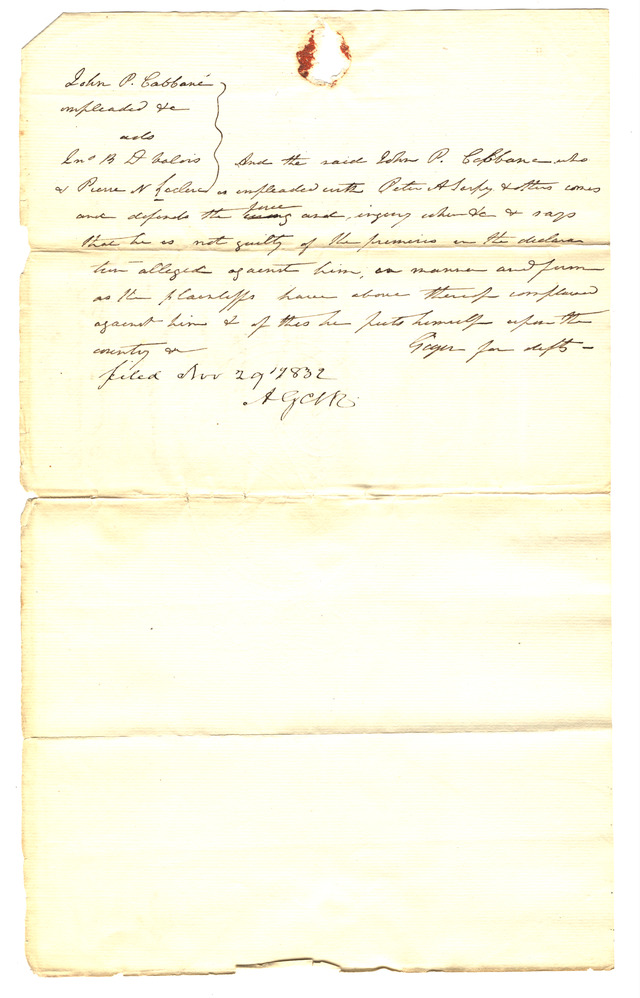 John P. Cabbané
impleaded &c
ads
Jno B D Valois
& Pierre N Leclere
And the said John P. Cabbane who
is impleaded with Peter A Sarpy & others comes
and defends the wrong force and injury when &c & says
that he is not guilty of the premises in the declara
tion alleged against him, in manner and form
as the plaintiffs have above thereof complained
against him & of this he puts himself upon the
country &c
Geyer for defts
filed Nov 29 1832